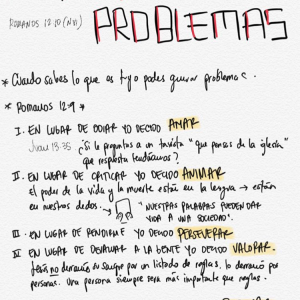 PROBLEMAS
ROMANOS 12:20 (NVI)
* Cuando sabes lo que es tuyo podes generar problemas.
* Romanos 12:9 *
I. EN LUGAR DE ODIAR YO DECIDO AMAR
Juan 13:35
¿Si le preguntas a un taxista "que piensas de la iglesia"
que respuesta tendríamos?
II. EN LUGAR DE CRITICAR YO DECIDO ANIMAR
el poder de la vida y la muerte están en la lengua → están
en nuestros dedos.
"NUESTRAS PALABRAS PUEDEN DAR
VIDA A UNA SOCIEDAD".
III. EN LUGAR DE RENDIRME YO DECIDO PERSEVERAR
IV EN LUGAR DE DEVALUAR A LA GENTE YO DECIDO VALORAR.
Jesús no derramó su sangre por un listado de reglas, lo derramó por
personas. Una persona siempre será más importante que reglas.